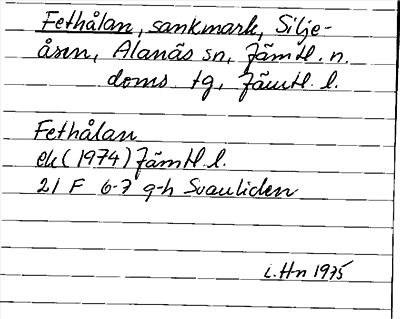 Fethålan, sankmark, Silje-
åsen, Alanäs sn, Jämtl. n.
doms. tg, Jämtl. l.
Fethålan
ek (1974) Jämtl. l.
21 F 6-7 g-h Svanliden
i. Hn 1975